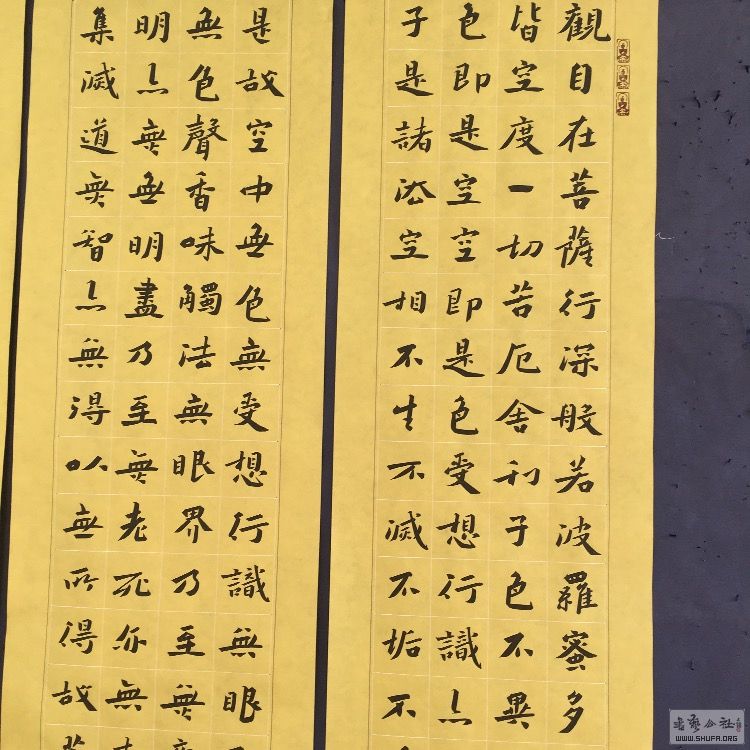 觀自在菩薩行深般若波羅蜜多
皆空度一切苦厄舍利子色不異
色即是空空即是色受想行識亦
子是諸法空相不生不滅不垢不
是故空中無色無受想行識無眼
無色聲香味觸法無眼界乃至無
明亦無無明盡乃至無老死亦無
集滅道無智亦無得以無所得故
書藝公社
WWW.SHUFA.ORG